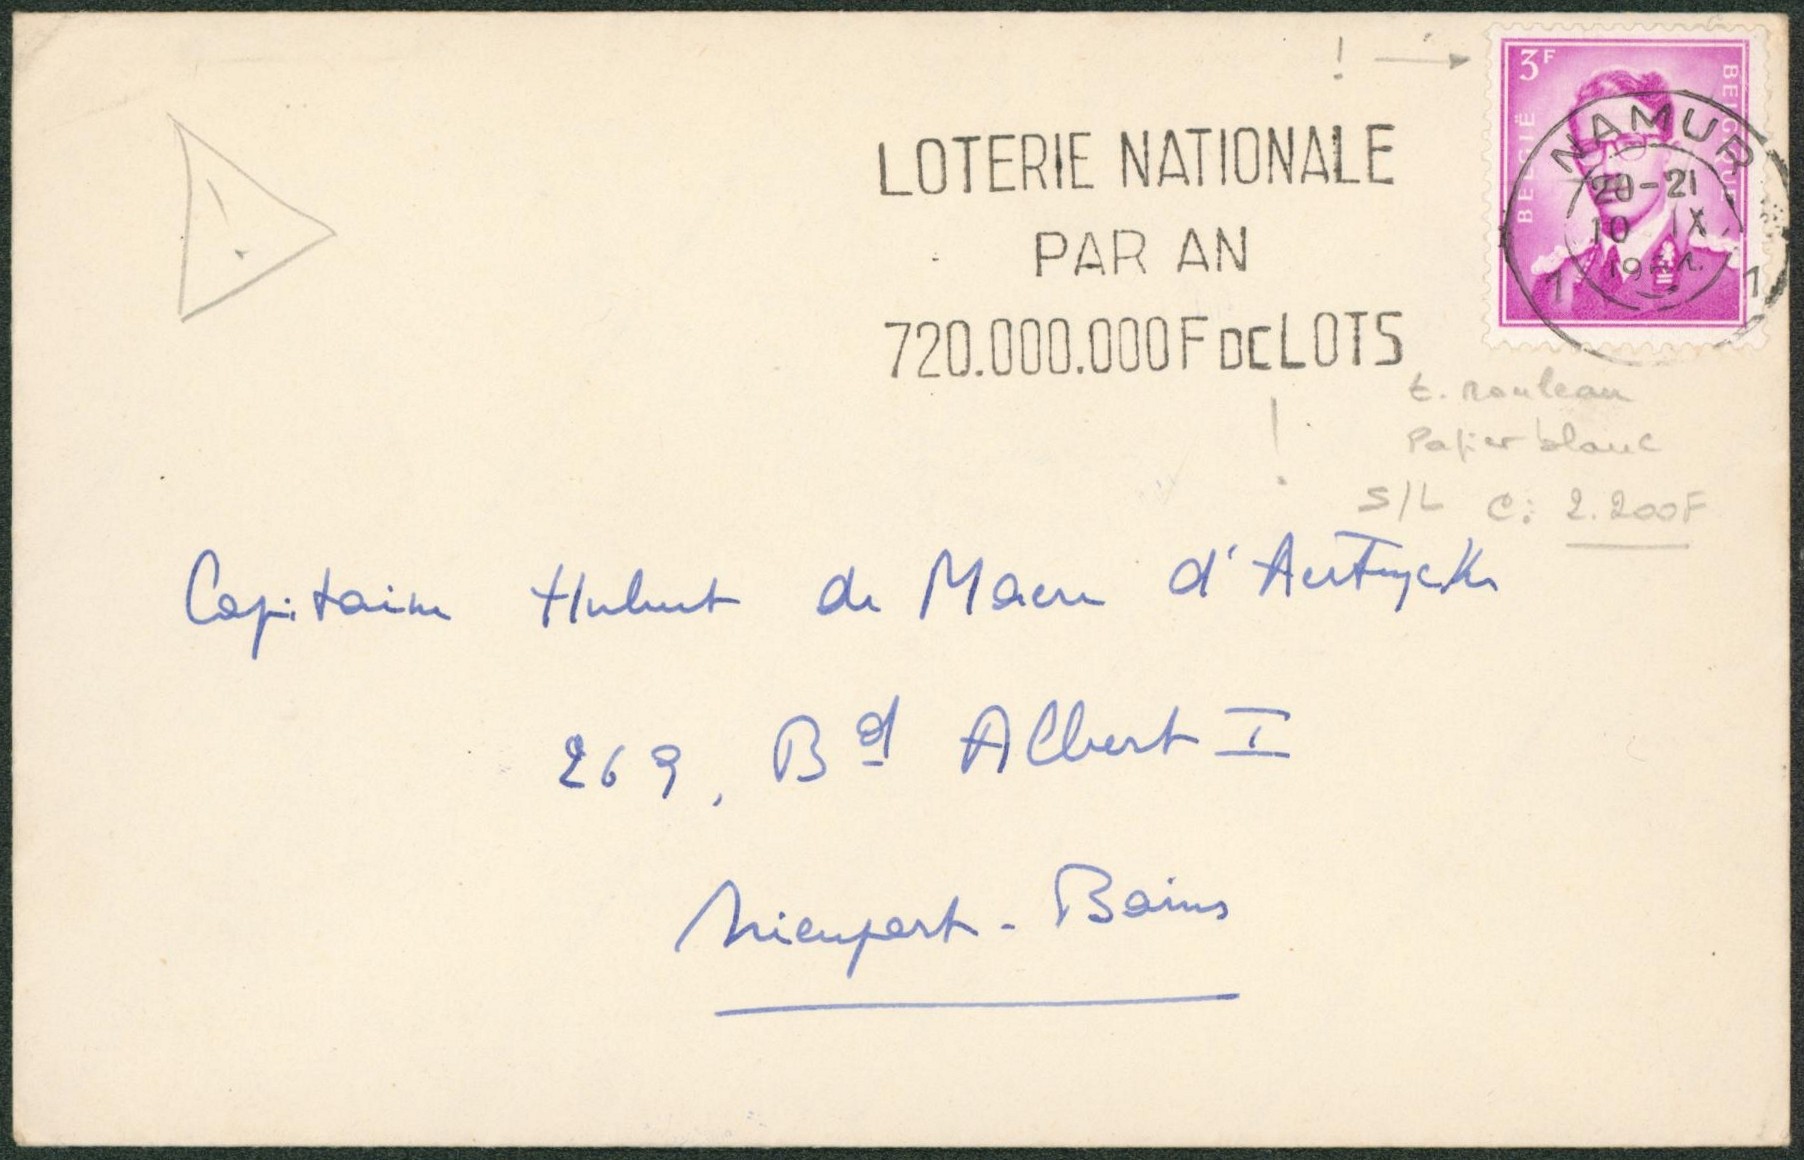 !
3F
BELGIË
BELGIQUE
NAMUR
20-21
10 IX
1 1
LOTERIE NATIONALE
PAR AN
720.000.000F DE LOTS
!
t. rouleau
Papier blanc
! S/L C: 2.200F
Capitaine Hubert de Maere d'Aertrycke
269, Bd Albert I
Nieuport - Bains